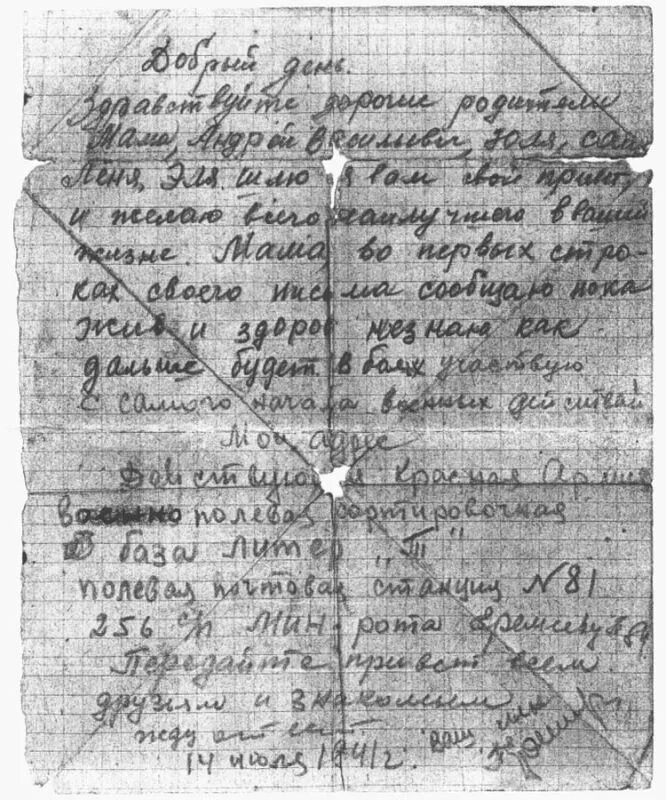 Добрый день.
Здравствуйте дорогие родители
Мама, Андрей Васильевич, Юля, Саш
Лёня, Эля. шлю я вам свой привет,
и желаю всего наилучшего в вашей
жизне. Мама, во первых стро-
ках своего письма сообщаю пока
жив и здоров незнаю как
дальше будет. в боях участвую
с самого начала военных действий
Мой адрес
Действующая Красная Армия
полевая сортировочная
база Литер „П"
полевая почтовая станция №81
256 с/п мин. рота
Передайте привет всем
друзьям и знакомым
жду ответ
14 июля 1941г. ваш сын